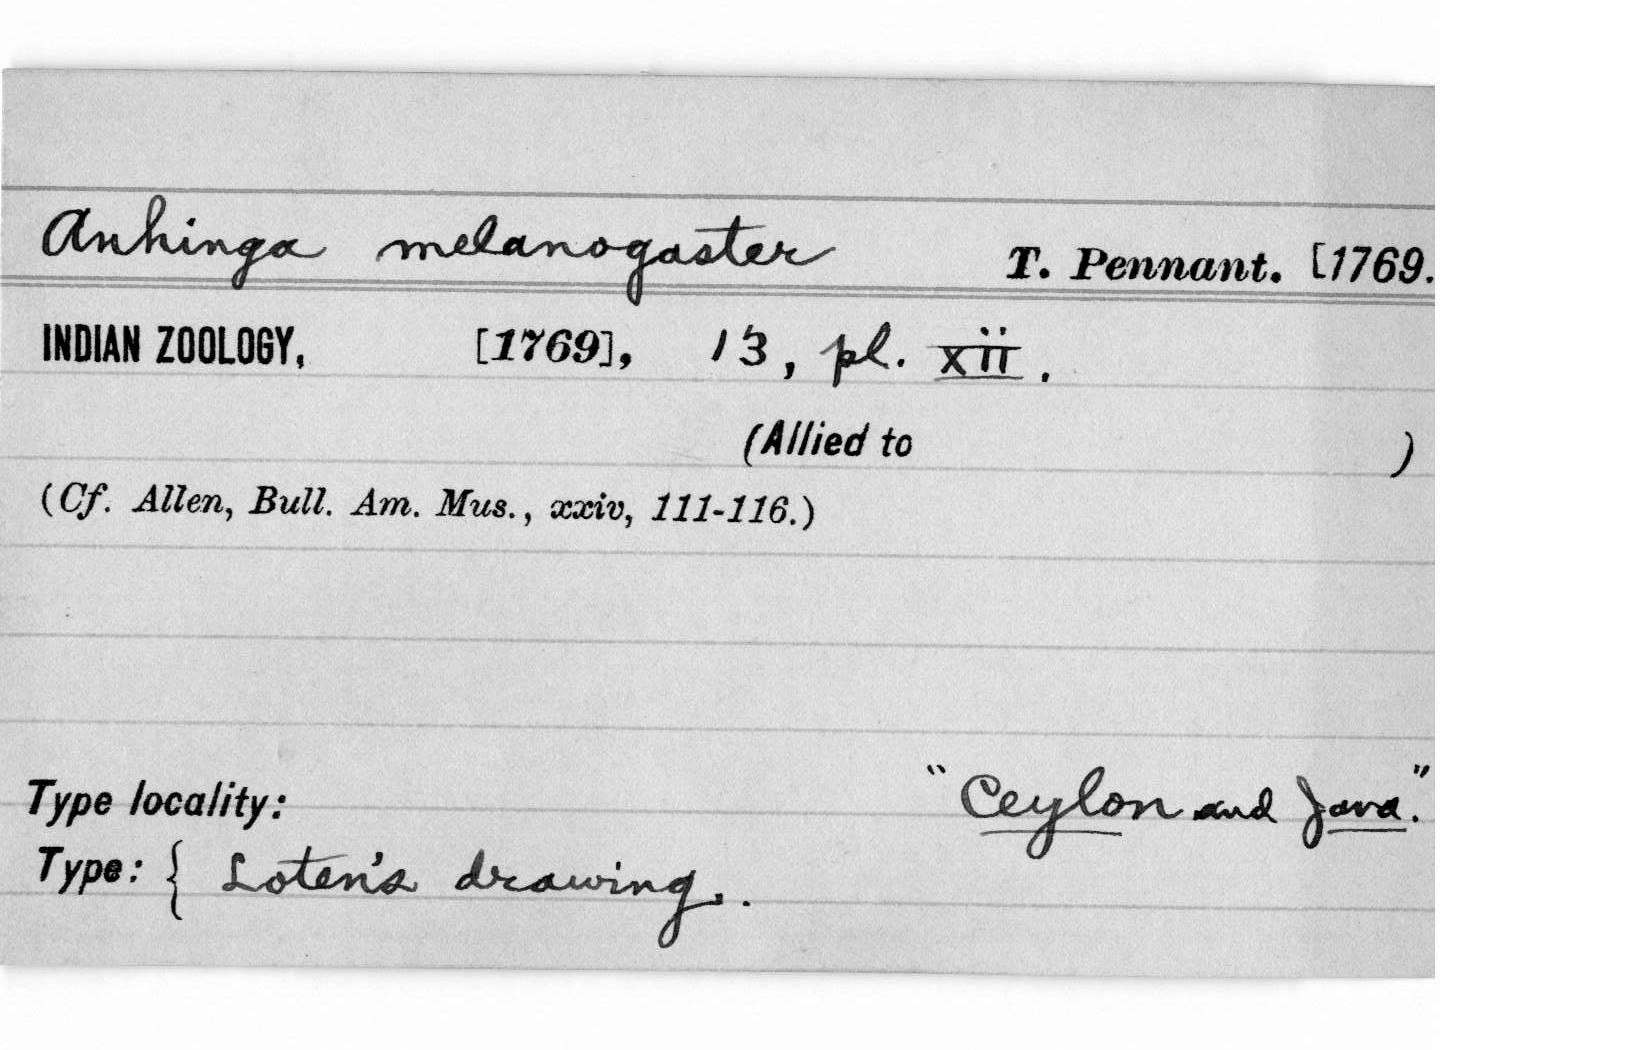 Anhinga melanogaster T. Pennant. [1769.
INDIAN ZOOLOGY, [1769], 13, pl. xii.
(Allied to )
(Cf. Allen, Bull. Am. Mus., xxiv, 111-116.)
Type locality: "Ceylon and Java."
Type: { Loten's drawing.